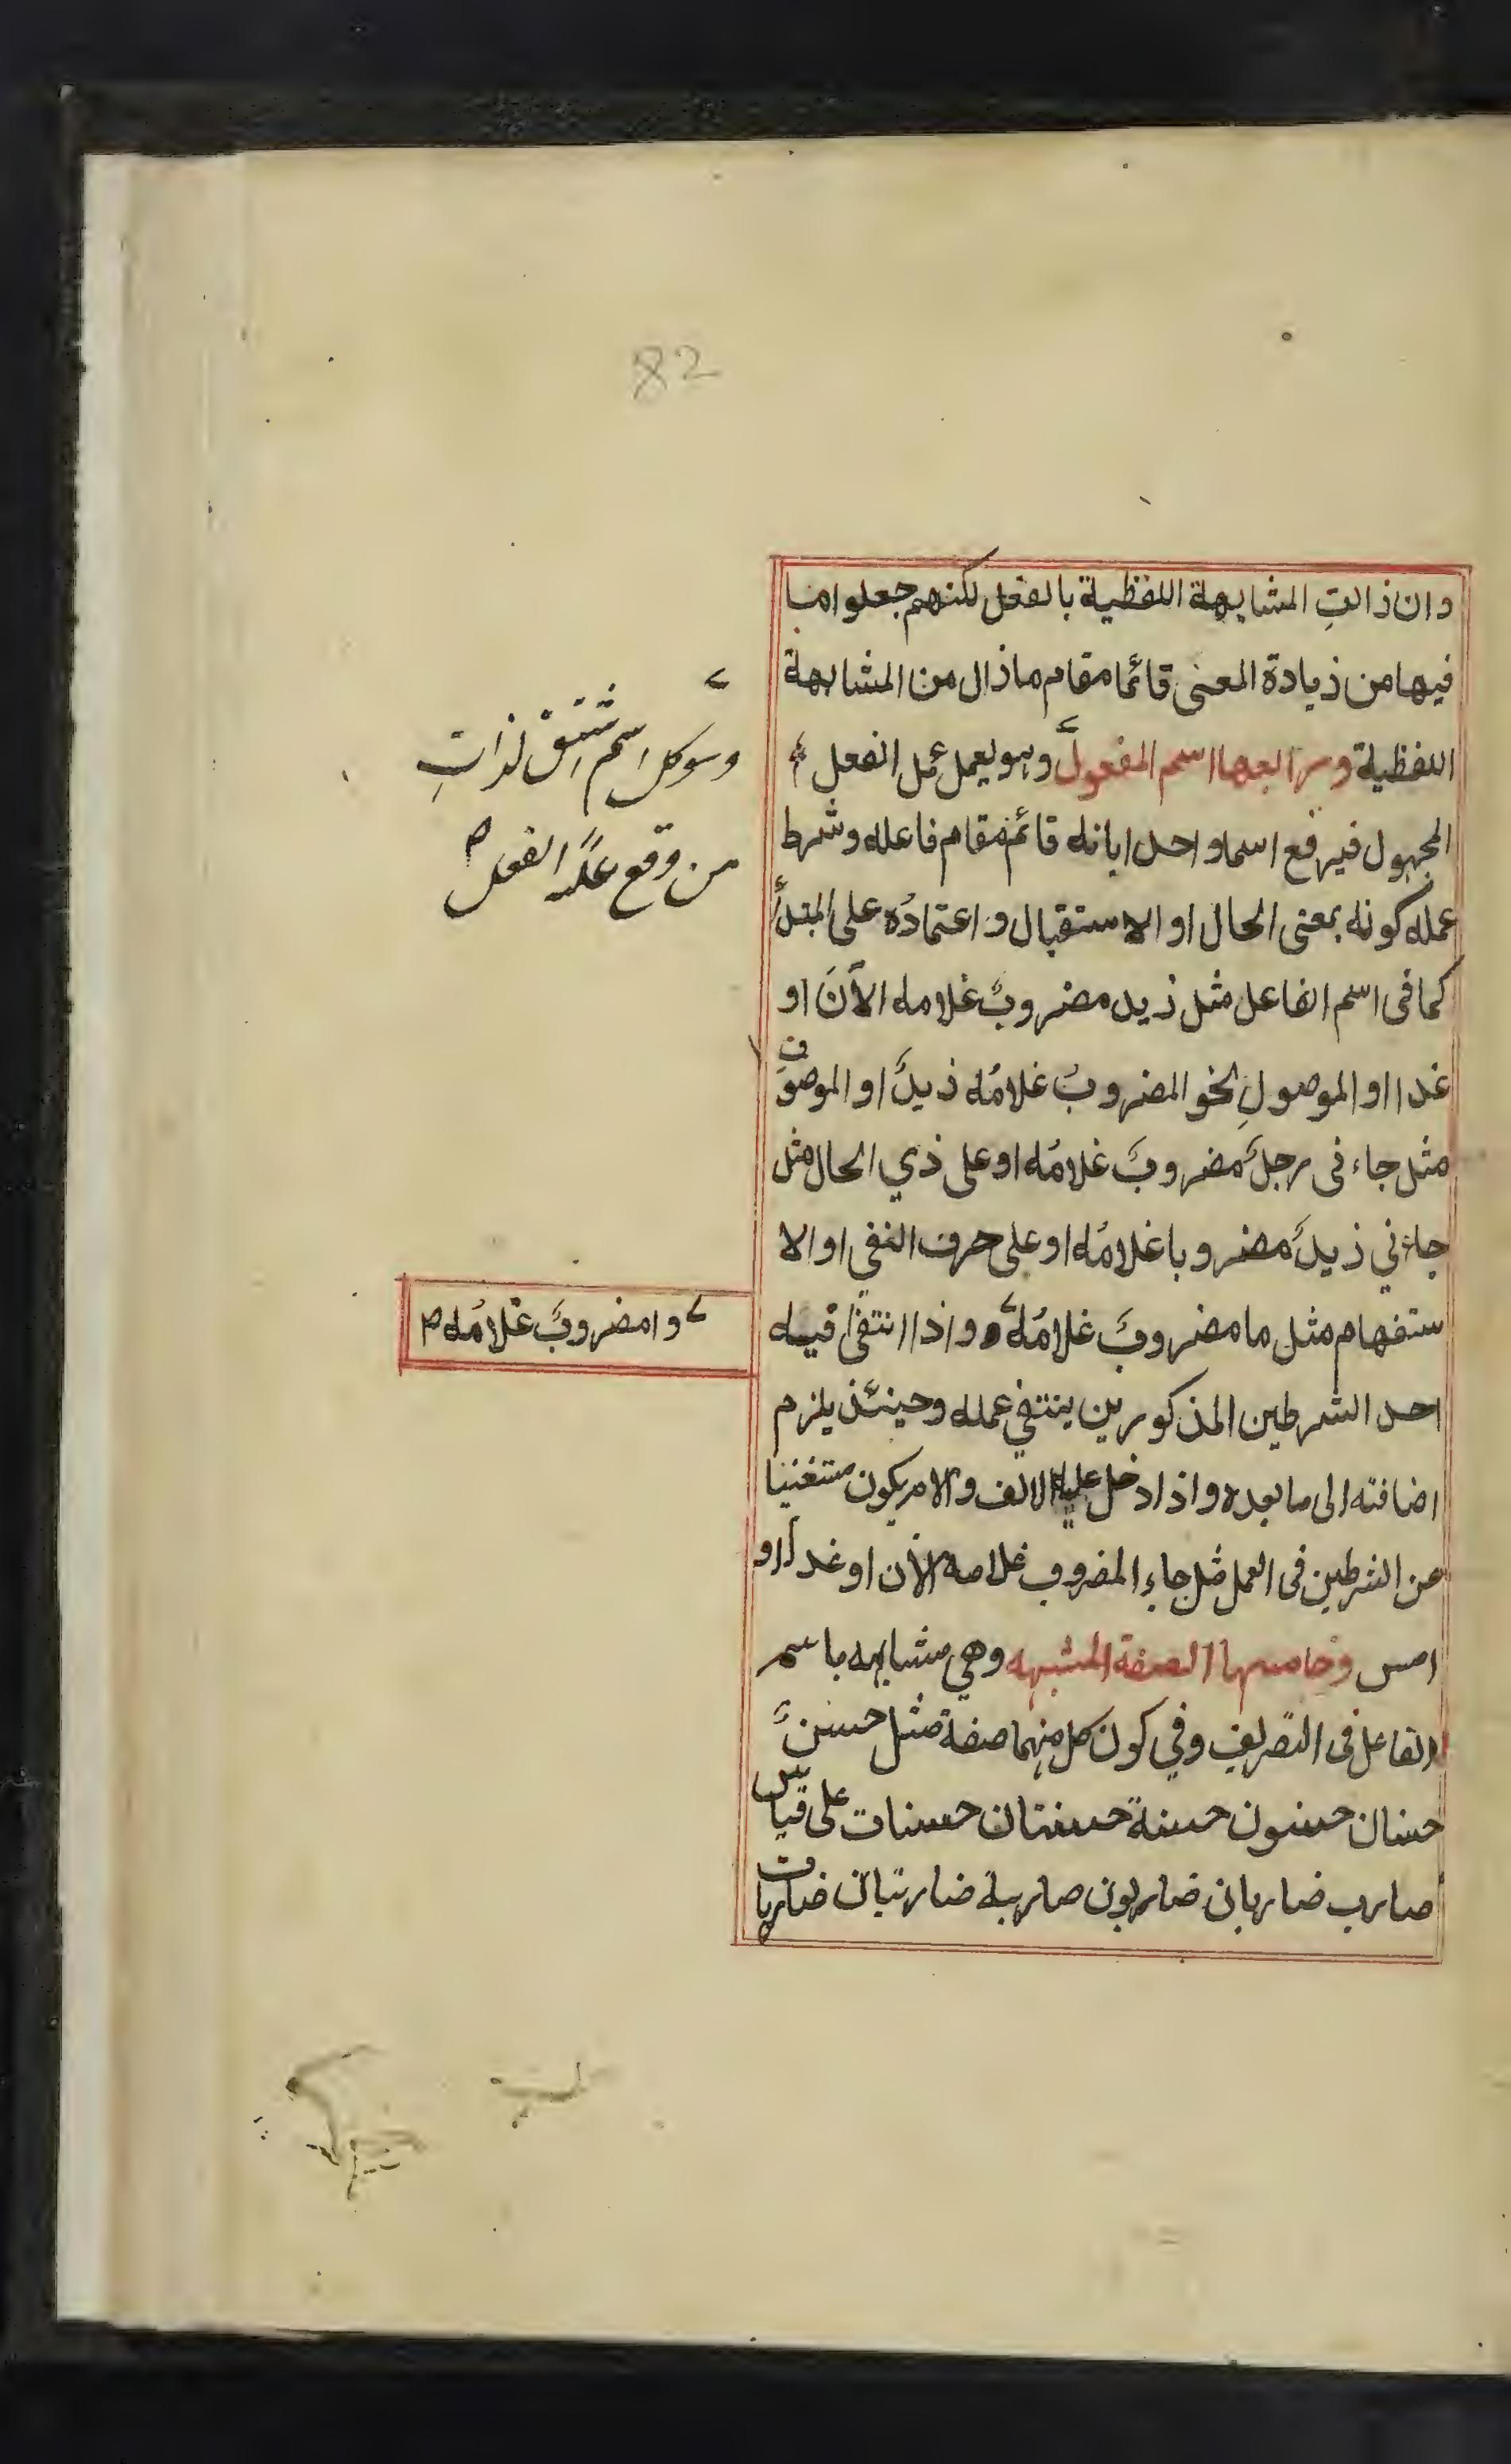 82
وان ذالتِ المشابهة اللفظية بالفعل لكنهم جعلوا ما
فيها من ذيادة المعنى قائما مقام ماذال من المشابهة
اللفظية ورابعها اسم المفعول وهو يعمل عمل الفعل
المجهول فيرفع اسما واحدا بانه قائم مقام فاعله وشرط
عمله كونه بمعنى الحال او الاستقبال واعتمادُه على المبتدأ
كما فى اسم الفاعل مثل ذيد مضروبٌ غلامه الآنَ او
غدا او الموصولِ نحو المضروبُ غلامُه ذيدٌ او الموصوفِ
مثل جاءنى رجلٌ مضروبٌ غلامُه او على ذي الحال مثل
جاءني ذيدٌ مضروبا غلامُه او على حرف النفي او الا
ستفهام مثل ما مضروبٌ غلامُه واذا انتفى فيه
احد الشرطين المذكورين ينتفي عمله وحينئذ يلزم
اضافته الى ما بعده واذا دخل عليه الالف والام يكون مستغنيا
عن الشرطين فى العمل مثل جاء المضروب غلامه الآن او غدا او
امس وخامسها الصفة المشبهه وهي مشابهه باسم
الفاعل فى التصريف وفي كون كل منهما صفة مثل حسنٌ
حسنان حسنون حسنة حسنتان حسنات على قياس
ضارب ضاربان ضاربون ضاربة ضاربتان ضاربات
وهو كل اسم اشتق لذاتِ
من وقع عليه الفعل
وا مضروبٌ غلامُه